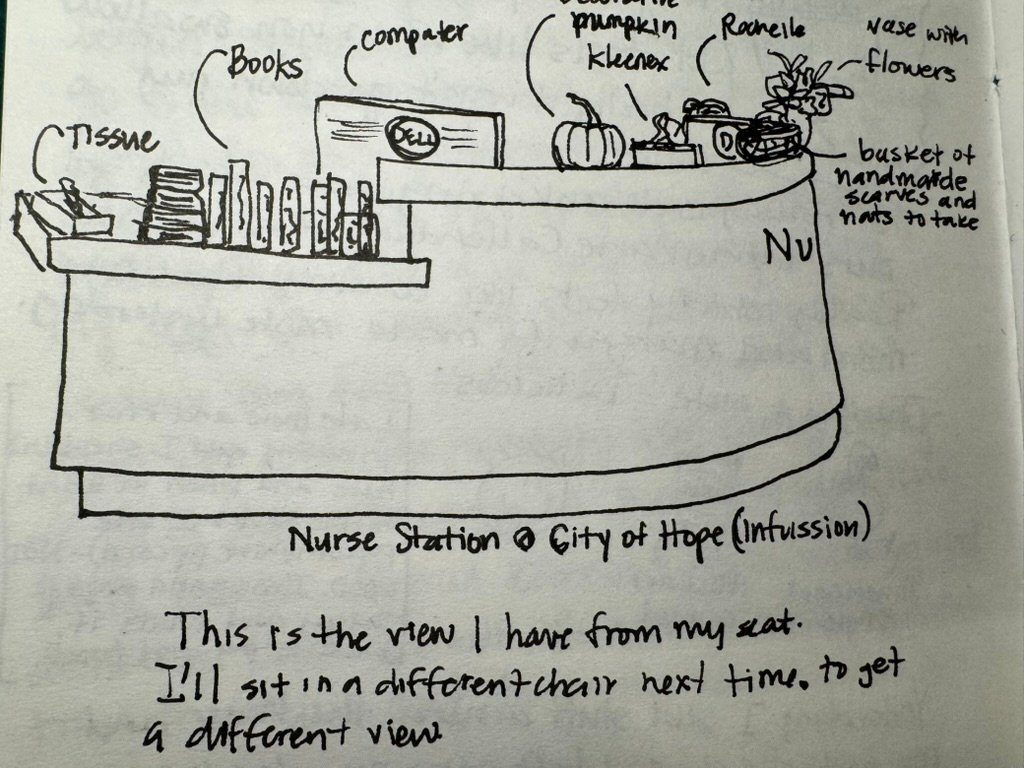 pumpkin
Kleenex
Rochelle
vase with
flowers
computer
Books
Tissue
DELL
D
basket of
handmade
scarves and
hats to take
Nu
Nurse Station @ City of Hope (Infuission)
This is the view I have from my seat.
I'll sit in a different chair next time. to get
a different view